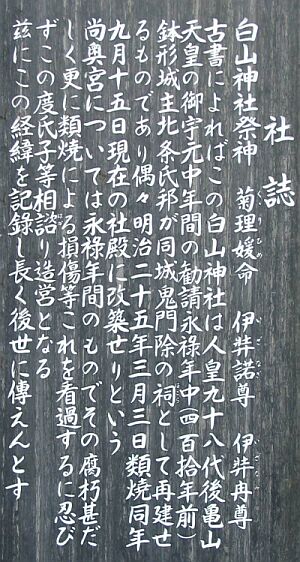 社誌
白山神社祭神　菊理媛命　伊弉諾尊　伊弉冉尊
古書によればこの白山神社は人皇九十八代後亀山
天皇の御宇元中年間の勧請永禄年中(四百拾年前)
鉢形城主北条氏邦が同城鬼門除の祠として再建せ
るものであり偶々明治二十五年三月三日類焼同年
九月十五日現在の社殿に改築せりという
尚奥宮については永禄年間のものでその腐朽甚だ
しく更に類焼による損傷等これを看過するに忍び
ずこの度氏子等相諮り造営となる
茲にこの経緯を記録し長く後世に傳えんとす